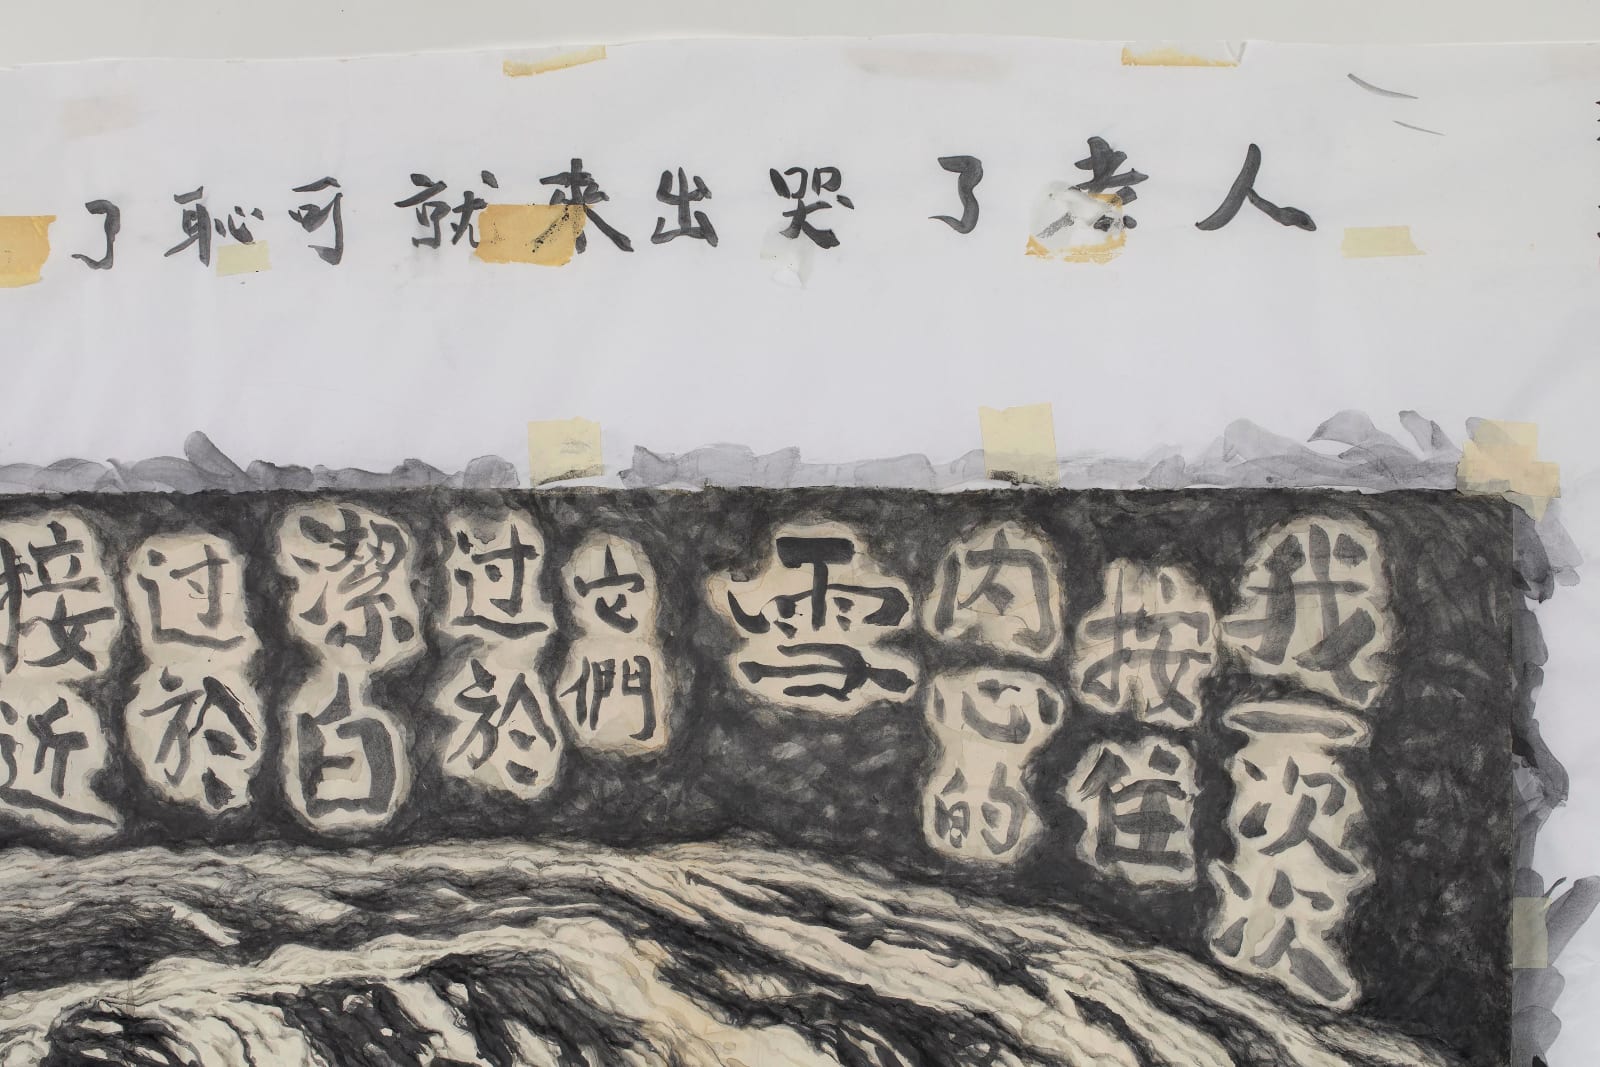 人老了哭出來就可恥了
我一次次
按住
内心的
雪
它們
过於
潔白
过於
接近